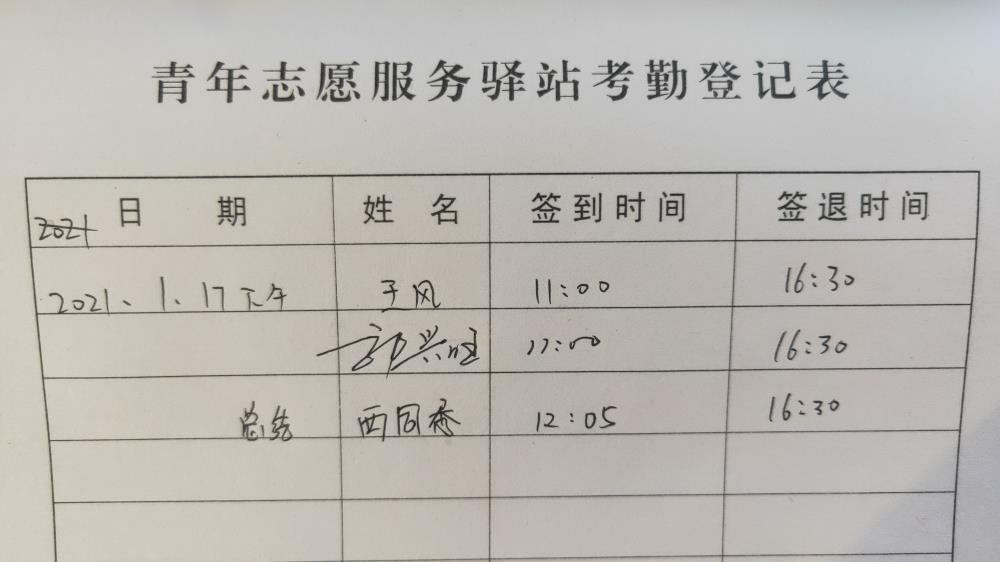 青年志愿服务驿站考勤登记表
日期 姓名 签到时间 签退时间
2021
2021、1、17下午 王风 11:00 16:30
郭兴旺 11:00 16:30
总结 西同秀 12:05 16:30